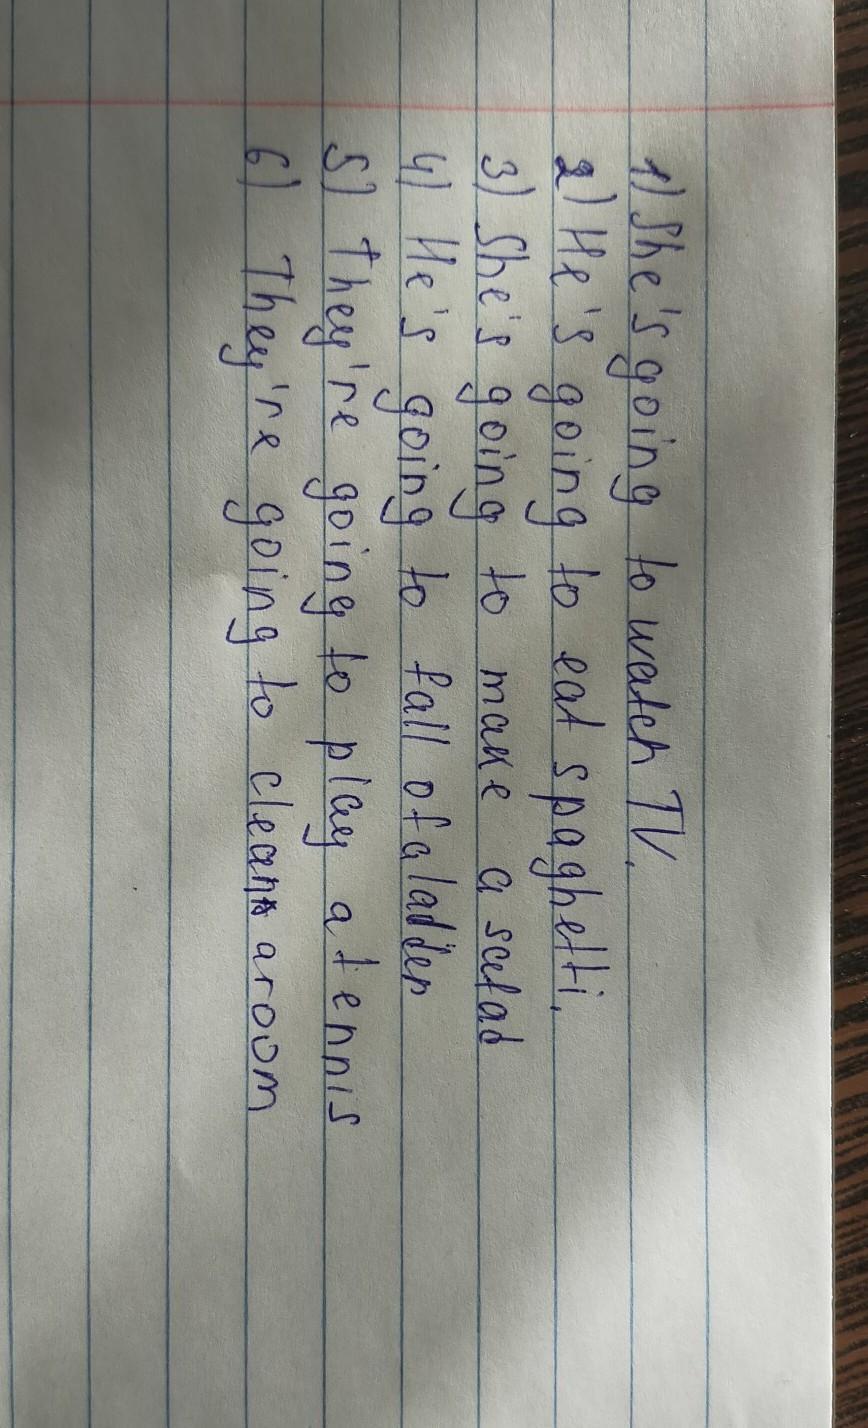 1) She's going to watch TV.
2) He's going to eat spaghetti.
3) She's going to make a salad
4) He's going to fall of a ladder
5) They're going to play a tennis
6) They're going to clean a room